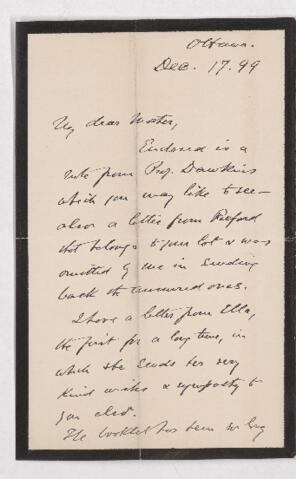 Ottawa.
Dec. 17. 99
My dear Mother,
Enclosed is a
note from Prof. Dawkins
which you may like to see –
also a letter from
that belongs to your lot & was
omitted by me in sending
back the answered ones.
I have a letter from Ella,
the first for a long time, in
which she sends her very
kind wishes & sympathy to
you also.
The booklet has been so long